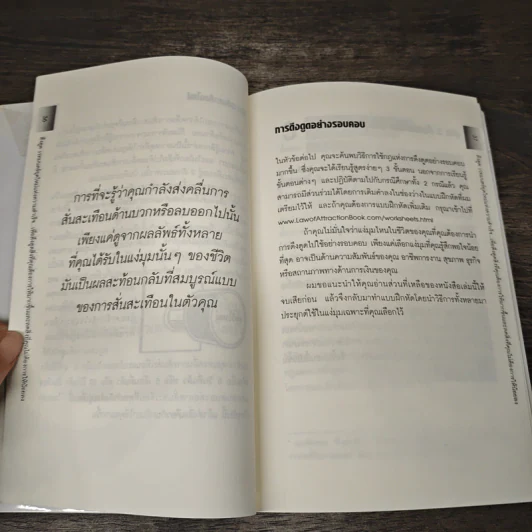 30
การที่จะรู้ว่าคุณกำลังส่งคลื่นการ
สั่นสะเทือนด้านบวกหรือลบออกไปนั้น
เพียงแค่ดูจากผลลัพธ์ทั้งหลาย
ที่คุณได้รับในแง่มุมนั้นๆ ของชีวิต
มันเป็นผลสะท้อนกลับที่สมบูรณ์แบบ
ของการสั่นสะเทือนในตัวคุณ
การดึงดูดอย่างรอบคอบ
ในหัวข้อต่อไป คุณจะค้นพบวิธีการใช้กฎแห่งการดึงดูดอย่างรอบคอบ
มากขึ้น ซึ่งคุณจะได้เรียนรู้สูตรง่ายๆ 3 ขั้นตอน นอกจากการเรียนรู้
ขั้นตอนต่างๆ และปฏิบัติตามไปกับกรณีศึกษาทั้ง 2 กรณีแล้ว คุณ
สามารถมีส่วนร่วมได้โดยการเติมคำลงในช่องว่างในแบบฝึกหัดที่ผม
เตรียมไว้ให้ และถ้าคุณต้องการแบบฝึกหัดเพิ่มเติม กรุณาเข้าไปที่
www.LawofAttractionBook.com/worksheets.html
ถ้าคุณไม่มั่นใจว่าแง่มุมไหนในชีวิตของคุณที่คุณต้องการนำ
การดึงดูดไปใช้อย่างรอบคอบ เพียงแค่เลือกแง่มุมที่คุณรู้สึกพอใจน้อย
ที่สุด อาจเป็นด้านความสัมพันธ์ของคุณ อาชีพการงาน สุขภาพ ธุรกิจ
หรือสถานภาพทางด้านการเงินของคุณ
ผมขอแนะนำให้คุณอ่านส่วนที่เหลือของหนังสือเล่มนี้ให้
จบเสียก่อน แล้วจึงกลับมาทำแบบฝึกหัดโดยนำวิธีการทั้งหลายมา
ประยุกต์ใช้ในแง่มุมเฉพาะที่คุณเลือกไว้